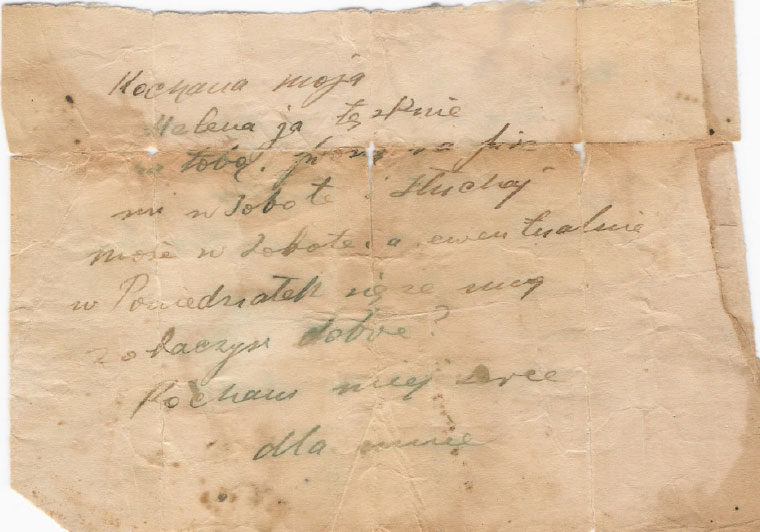 Kochana moja
Halena ja tęsknie
tobą.
mi w Sobote i Słuchaj
może w Sobote. a ewentualnie
w Poniedziałek się ze mną
zobaczysz dobrze?
Kocham miej serce
dla mnie